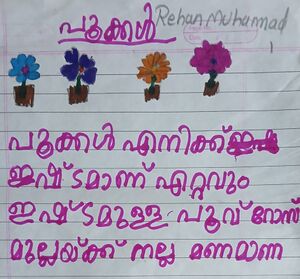 Rehan Muhammad
പൂക്കൾ
1
പൂക്കൾ എനിക്ക്
ഇഷ്ടമാണ് ഏറ്റവും
ഇഷ്ടമുള്ള പൂവ് റോസ്
മുല്ലയ്ക്ക് നല്ല മണമാണ